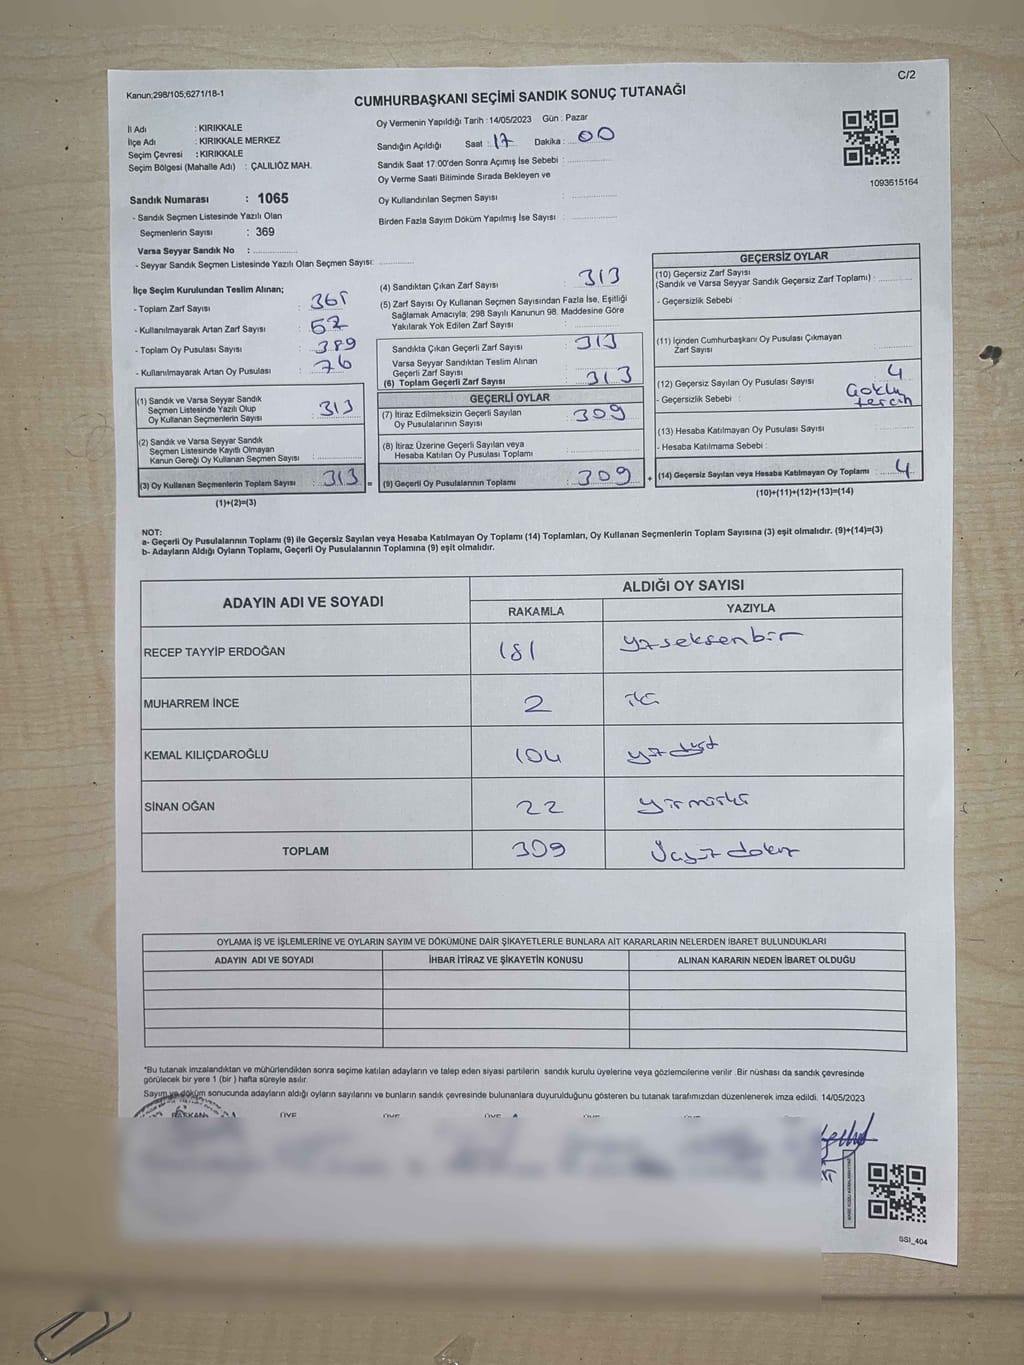 C/2
Kanun;298/105;6271/18-1
CUMHURBAŞKANI SEÇİMİ SANDIK SONUÇ TUTANAĞI
İl Adı : KIRIKKALE
İlçe Adı : KIRIKKALE MERKEZ
Seçim Çevresi : KIRIKKALE
Seçim Bölgesi (Mahalle Adı) : ÇALILIÖZ MAH.
Oy Vermenin Yapıldığı Tarih : 14/05/2023 Gün : Pazar
Sandığın Açıldığı Saat : 17 Dakika : 00
Sandık Saat 17:00'den Sonra Açımış İse Sebebi :
Oy Verme Saati Bitiminde Sırada Bekleyen ve
Oy Kullandırılan Seçmen Sayısı :
Birden Fazla Sayım Döküm Yapılmış İse Sayısı :
1093615164
Sandık Numarası : 1065
- Sandık Seçmen Listesinde Yazılı Olan
Seçmenlerin Sayısı : 369
Varsa Seyyar Sandık No :
- Seyyar Sandık Seçmen Listesinde Yazılı Olan Seçmen Sayısı:
İlçe Seçim Kurulundan Teslim Alınan;
- Toplam Zarf Sayısı :
- Kullanılmayarak Artan Zarf Sayısı :
- Toplam Oy Pusulası Sayısı : 389
- Kullanılmayarak Artan Oy Pusulası : 76
(1) Sandık ve Varsa Seyyar Sandık
Seçmen Listesinde Yazılı Olup
Oy Kullanan Seçmenlerin Sayısı : 313
(2) Sandık ve Varsa Seyyar Sandık
Seçmen Listesinde Kayıtlı Olmayan
Kanun Gereği Oy Kullanan Seçmen Sayısı :
(3) Oy Kullanan Seçmenlerin Toplam Sayısı : 313 =
(1)+(2)=(3)
(4) Sandıktan Çıkan Zarf Sayısı : 313
(5) Zarf Sayısı Oy Kullanan Seçmen Sayısından Fazla İse, Eşitliği
Sağlamak Amacıyla; 298 Sayılı Kanunun 98. Maddesine Göre
Yakılarak Yok Edilen Zarf Sayısı :
Sandıkta Çıkan Geçerli Zarf Sayısı : 313
Varsa Seyyar Sandıktan Teslim Alınan
Geçerli Zarf Sayısı :
(6) Toplam Geçerli Zarf Sayısı : 313
GEÇERLİ OYLAR
(7) İtiraz Edilmeksizin Geçerli Sayılan
Oy Pusulalarının Sayısı : 309
(8) İtiraz Üzerine Geçerli Sayılan veya
Hesaba Katılan Oy Pusulası Toplamı :
(9) Geçerli Oy Pusulalarının Toplamı : 309 +
GEÇERSİZ OYLAR
(10) Geçersiz Zarf Sayısı
(Sandık ve Varsa Seyyar Sandık Geçersiz Zarf Toplamı) :
- Geçersizlik Sebebi :
(11) İçinden Cumhurbaşkanı Oy Pusulası Çıkmayan
Zarf Sayısı :
(12) Geçersiz Sayılan Oy Pusulası Sayısı : 4
- Geçersizlik Sebebi :
tercih
(13) Hesaba Katılmayan Oy Pusulası Sayısı :
- Hesaba Katılmama Sebebi :
(14) Geçersiz Sayılan veya Hesaba Katılmayan Oy Toplamı : 4
(10)+(11)+(12)+(13)=(14)
NOT:
a- Geçerli Oy Pusulalarının Toplamı (9) ile Geçersiz Sayılan veya Hesaba Katılmayan Oy Toplamı (14) Toplamları, Oy Kullanan Seçmenlerin Toplam Sayısına (3) eşit olmalıdır. (9)+(14)=(3)
b- Adayların Aldığı Oyların Toplamı, Geçerli Oy Pusulalarının Toplamına (9) eşit olmalıdır.
ADAYIN ADI VE SOYADI
ALDIĞI OY SAYISI
RAKAMLA YAZIYLA
RECEP TAYYİP ERDOĞAN 181 yüzseksenbir
MUHARREM İNCE 2 iki
KEMAL KILIÇDAROĞLU 104 yüzdört
SİNAN OĞAN 22 yirmiiki
TOPLAM 309 Üçyüzdokuz
OYLAMA İŞ VE İŞLEMLERİNE VE OYLARIN SAYIM VE DÖKÜMÜNE DAİR ŞİKAYETLERLE BUNLARA AİT KARARLARIN NELERDEN İBARET BULUNDUKLARI
ADAYIN ADI VE SOYADI İHBAR İTİRAZ VE ŞİKAYETİN KONUSU ALINAN KARARIN NEDEN İBARET OLDUĞU
*Bu tutanak imzalandıktan ve mühürlendikten sonra seçime katılan adayların ve talep eden siyasi partilerin sandık kurulu üyelerine veya gözlemcilerine verilir .Bir nüshası da sandık çevresinde
görülecek bir yere 1 (bir ) hafta süreyle asılır.
Sayım ve döküm sonucunda adayların aldığı oyların sayılarını ve bunların sandık çevresinde bulunanlara duyurulduğunu gösteren bu tutanak tarafımızdan düzenlenerek imza edildi. 14/05/2023
BAŞKAN ÜYE ÜYE ÜYE ÜYE ÜYE
SSI_404